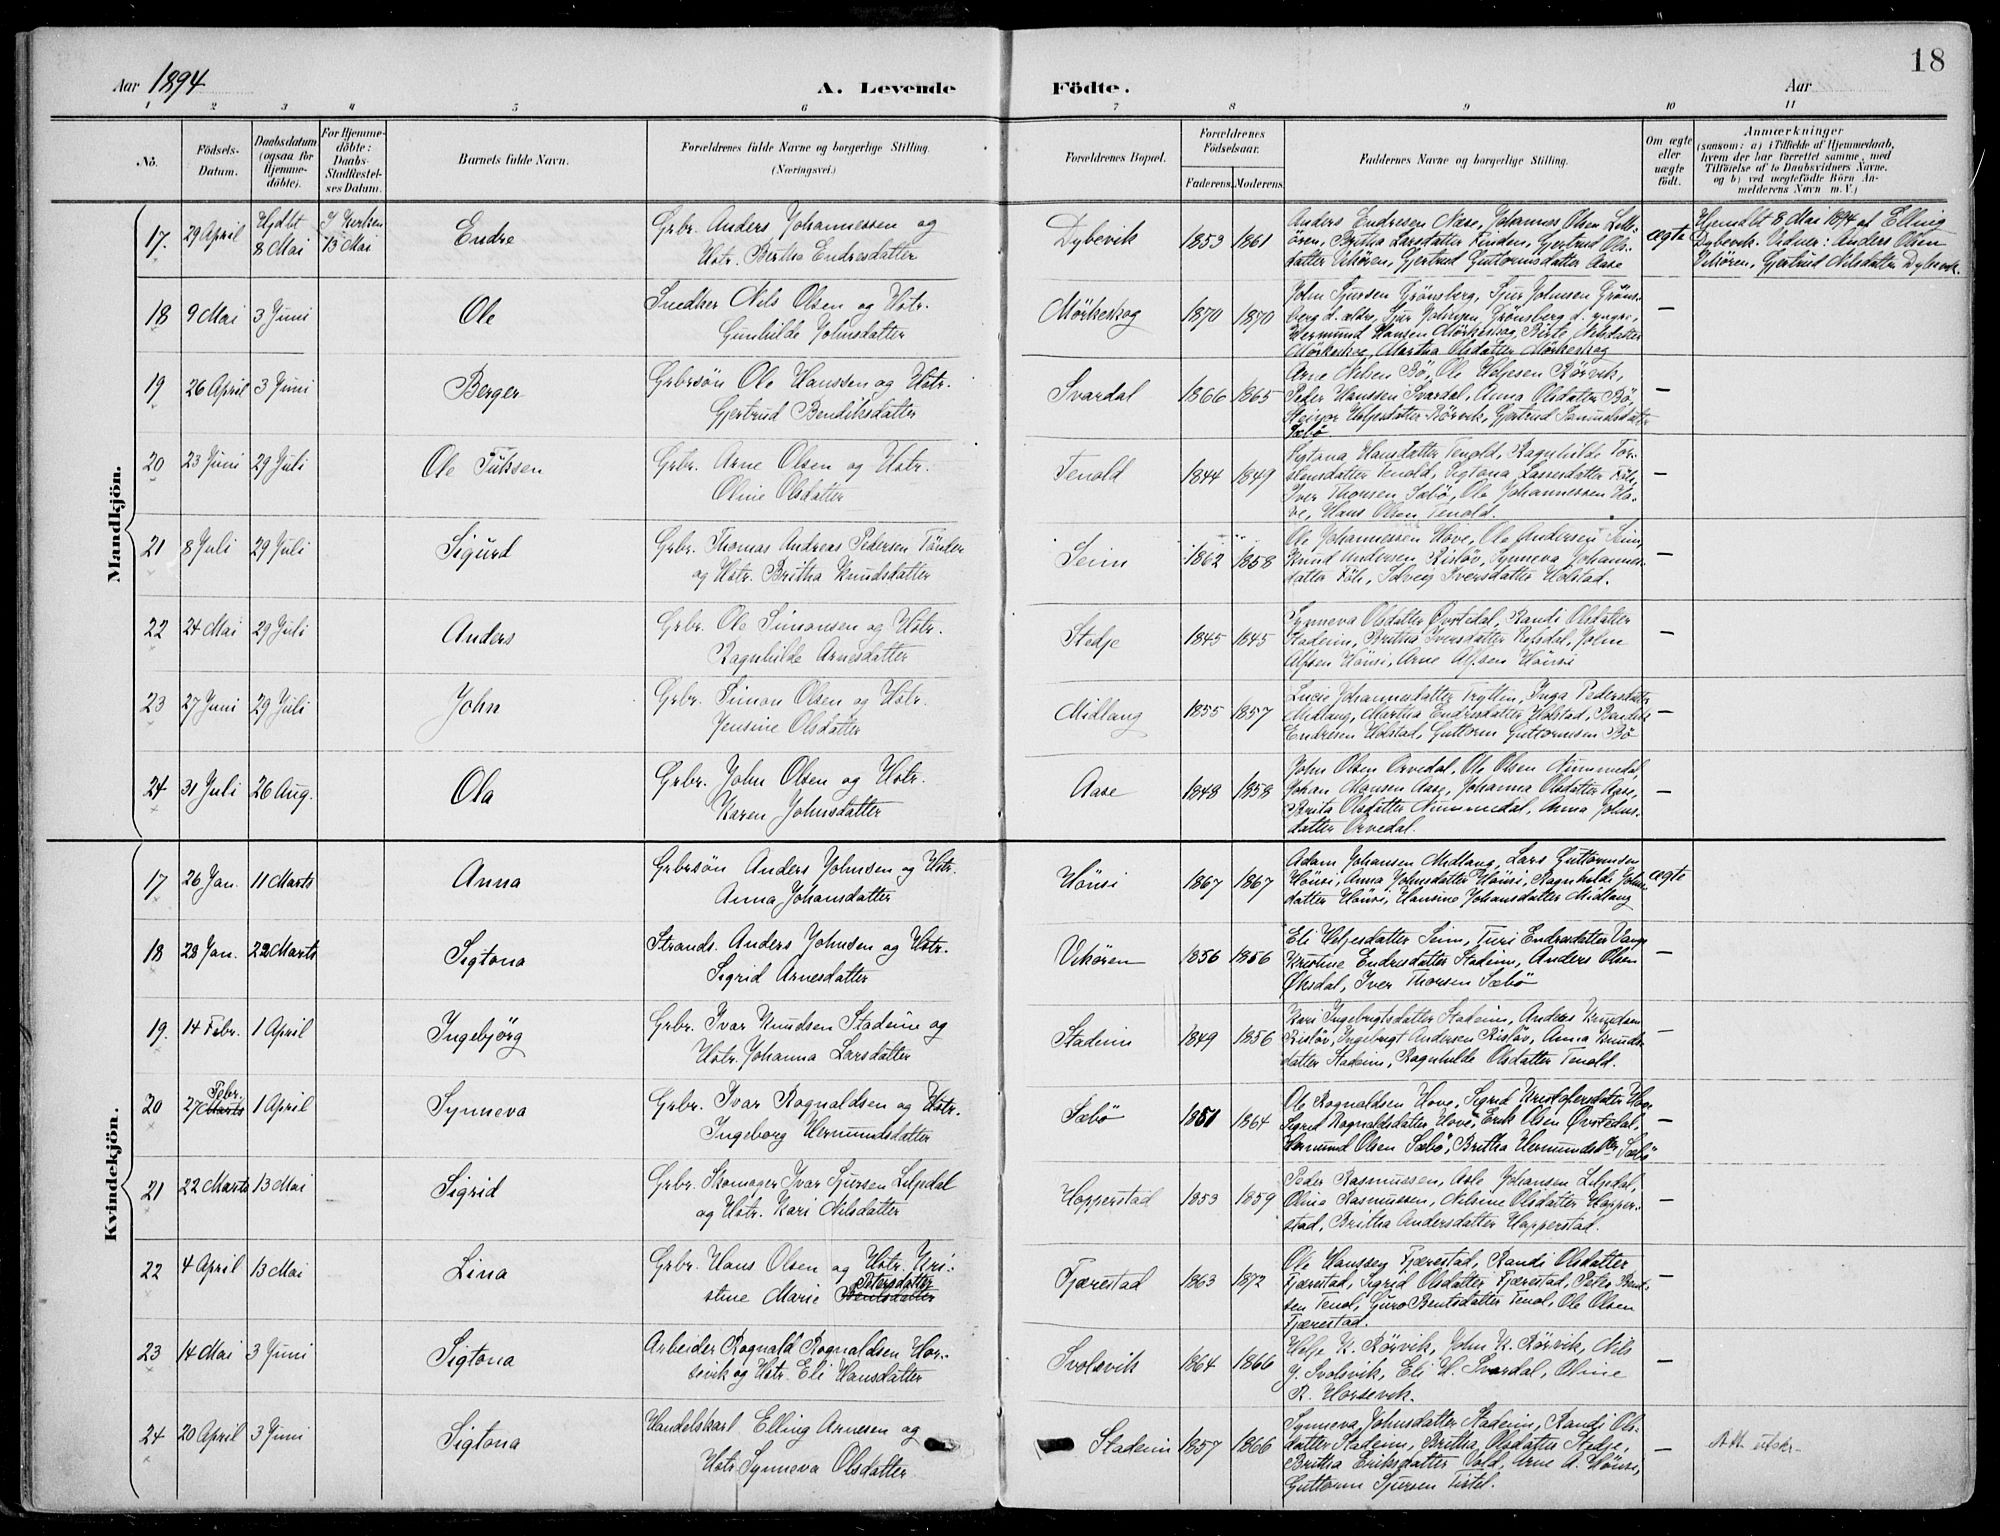 18
Aar 1894
A. Levende Födte.
Aar
1 2 3 4 5 6 7 8 9 10 11
No.
Födsels-Datum.
Daabsdatum (ogsaa for Hjemme-döbte).
For Hjemme-döbte: Daabs-Stadfæstel-ses Datum.
Barnets fulde Navn.
Forældrenes fulde Navne og borgerlige Stilling. (Næringsvei.)
Forældrenes Bopæl.
Forældrenes Födselsaar.
Faderens. Moderens.
Faddernes Navne og borgerlige Stilling.
Om ægte eller uægte födt.
Anmærkninger
(saasom: a) i Tilfælde af Hjemmedaab, hvem der har forrettet samme, med Tilföielse af to Daabsvidners Navne, og b) ved uægtefödte Börn Anmelderens Navn m. V.)
Mandkjön.
17. 29 April Hjdbt 8 Mai I Kirken 13 Mai Endre
Grbr. Anders Johannessen og
Hstr. Bertha Endresdatter
Dybevik 1853 1861
Anders Endresen Aase, Johannes Olsen Lill-
ören, Britha Larsdatter Finden, Gjertrud Ols-
datter Vikören, Gjertrud Guttormsdatter Aase
ægte
Hjemdbt 8 Mai 1894 af Elling
Dybevik. Vidner: Anders Olsen
Vikören, Gjertrud Nilsdatter Dybevik.
18 9 Mai 3 Juni Ole
Snedker Nils Olsen og Hstr.
Gunhilde Johnsdatter
Mörkeskog 1870 1870
John Sjursen Grönsberg, Sjur Johnsen Gröns-
berg d. ældre, Sjur Johnsen Grönsberg d. yngre,
Hermund Hansen Mörkeskog, Birte Nilsdatter
Mörkeskog, Martha Olsdatter Mörkeskog
—
19 26 April 3 Juni Berger
Grbrsön Ole Hanssen og Hstr.
Gjertrud Bendiksdatter
Svardal 1866 1865
Arne Nilsen Bö, Ole Heljesen Rörvik,
Peder Hanssen Svardal, Anna Olsdatter Bö,
Steivor Heljesdatter Rörvik, Gjertrud Samuelsdatter
Sæbö
—
20 23 Juni 29 Juli Ole Tüksen
Grbr. Arne Olsen og Hstr.
Oline Olsdatter
Tenold 1844 1849
Sigtona Hansdatter Tenold, Ragnhilde Tor-
stensdatter Tenold, Sigtona Lassesdatter Föli,
Iver Thorsen Sæbö, Ole Johannessen Ho-
ve, Hans Olsen Tenold.
—
21 8 Juli 29 Juli Sigurd
Grbr. Thomas Andreas Pedersen Tönder
og Hstr. Britha Knudsdatter
Seim 1862 1858
Ole Johannessen Hove, Ole Andersen Seim,
Knud Andersen Risløv, Synneva Johannes-
datter Föli, Solveig Iversdatter Holstad.
—
22 24 Mai 29 Juli Anders
Grbr. Ole Simonsen og Hstr.
Ragnhilde Arnesdatter
Stedje 1845 1845
Synneva Olsdatter Øvstedal, Randi Olsdatter
Stadeim, Britha Iversdatter Refsdal, John
Alfsen Hönsi, Arne Alfsen Hönsi
—
23 27 Juni 29 Juli John
Grbr. Simon Olsen og Hstr.
Jensine Olsdatter
Midlang 1855 1857
Lucie Johannesdatter Trytten, Inga Pedersdatter
Midlang, Martha Endresdatter Holstad,
Endresen Holstad, Guttorm Guttormsen Bö
—
24 31 Juli 26 Aug. Ola
Grbr. John Olsen og Hstr.
Karen Johnsdatter
Aase 1848 1858
John Olsen Orvedal, Ole Olsen Nummedal,
Johan Monsen Aase, Johanna Olsdatter Aase,
Brita Olsdatter Nummedal, Anna Johns-
datter Orvedal.
—
Kvindekjön.
17 26 Jan. 11 Marts Anna
Grbrsön Anders Johnsen og Hstr.
Anna Johansdatter
Hönsi 1867 1867
Adam Johansen Midlang, Lars Guttormsen
Hönsi, Anna Johnsdatter Hönsi, Ragnhilde Johns-
datter Hönsi, Hansine Johansdatter Midlang
ægte
18 28 Jan. 22 Marts Sigtona
Strands. Anders Johnsen og Hstr.
Sigrid Arnesdatter
Vikören 1856 1856
Eli Heljesdatter Seim, Turi Endresdatter Vange
Kristine Endresdatter Stadeim, Anders Olsen
Øksdal, Iver Thorsen Sæbö
—
19. 14 Febr. 1 April Ingebjörg
Grbr. Ivar Knudsen Stadeim og
Hstr. Johanna Larsdatter
Stadeim 1849 1856
Kari Ingebrigtsdatter Stadeim, Anders Knudsen
Risløv, Ingebrigt Andersen Risløv, Anna Knuds-
datter Stadeim, Ragnhilde Olsdatter Tenold.
—
20 27 Marts Febr. 1 April Synneva
Grbr. Ivar Rognaldsen og Hstr.
Ingeborg Hermundsdatter
Sæbö 1851 1864
Ole Rognaldsen Hove, Sigrid Kristofersdatter Hove
Sigrid Rognaldsdatter Hove, Erik Olsen Øvstedal,
Hermund Olsen Sæbö, Britha Hermundsdtr Sæbö
—
21 22 Marts 13 Mai Sigrid
Grbr. Skomager Ivar Sjursen Liljedal
og Hstr. Kari Nilsdatter
Hopperstad 1853 1859
Peder Rasmussen, Asle Johansen Liljedal,
Olina Rasmussen, Nilsine Olsdatter Hopper-
stad, Britha Andersdatter Hopperstad.
—
22 4 April 13 Mai Lina
Grbr. Hans Olsen og Hstr. Kri-
stine Marie Bentsdatter Petersdatter
Fjærestad 1863 1872
Ole Hanssen Fjærestad, Randi Olsdatter
Fjærestad, Sigrid Olsdatter Fjærestad, Peter Bent-
sen Tenol, Guro Bentsdatter Tenol, Ole Olsen
Fjærestad.
—
23 14 Mai 3 Juni Sigtona
Arbeider Rognald Rognaldsen Hor-
sevik og Hstr. Eli Hansdatter
Svolsvik 1864 1866
Helje K. Rörvik, John K. Rörvik, Nils
J. Svolsvik, Eli H. Svardal, Oline
R. Horsevik.
—
24 20 April 3 Juni Sigtona
Handelskarl Elling Arnesen og
Hstr. Synneva Olsdatter
Stadeim 1857 1866
Synneva Johnsdatter Stadeim, Randi Ols-
datter Stadeim, Britha Olsdatter Stedje,
Britha Eriksdatter Vold, Arne A. Hönsi,
Guttorm Sjursen Tistel.
—
Att. utskr.